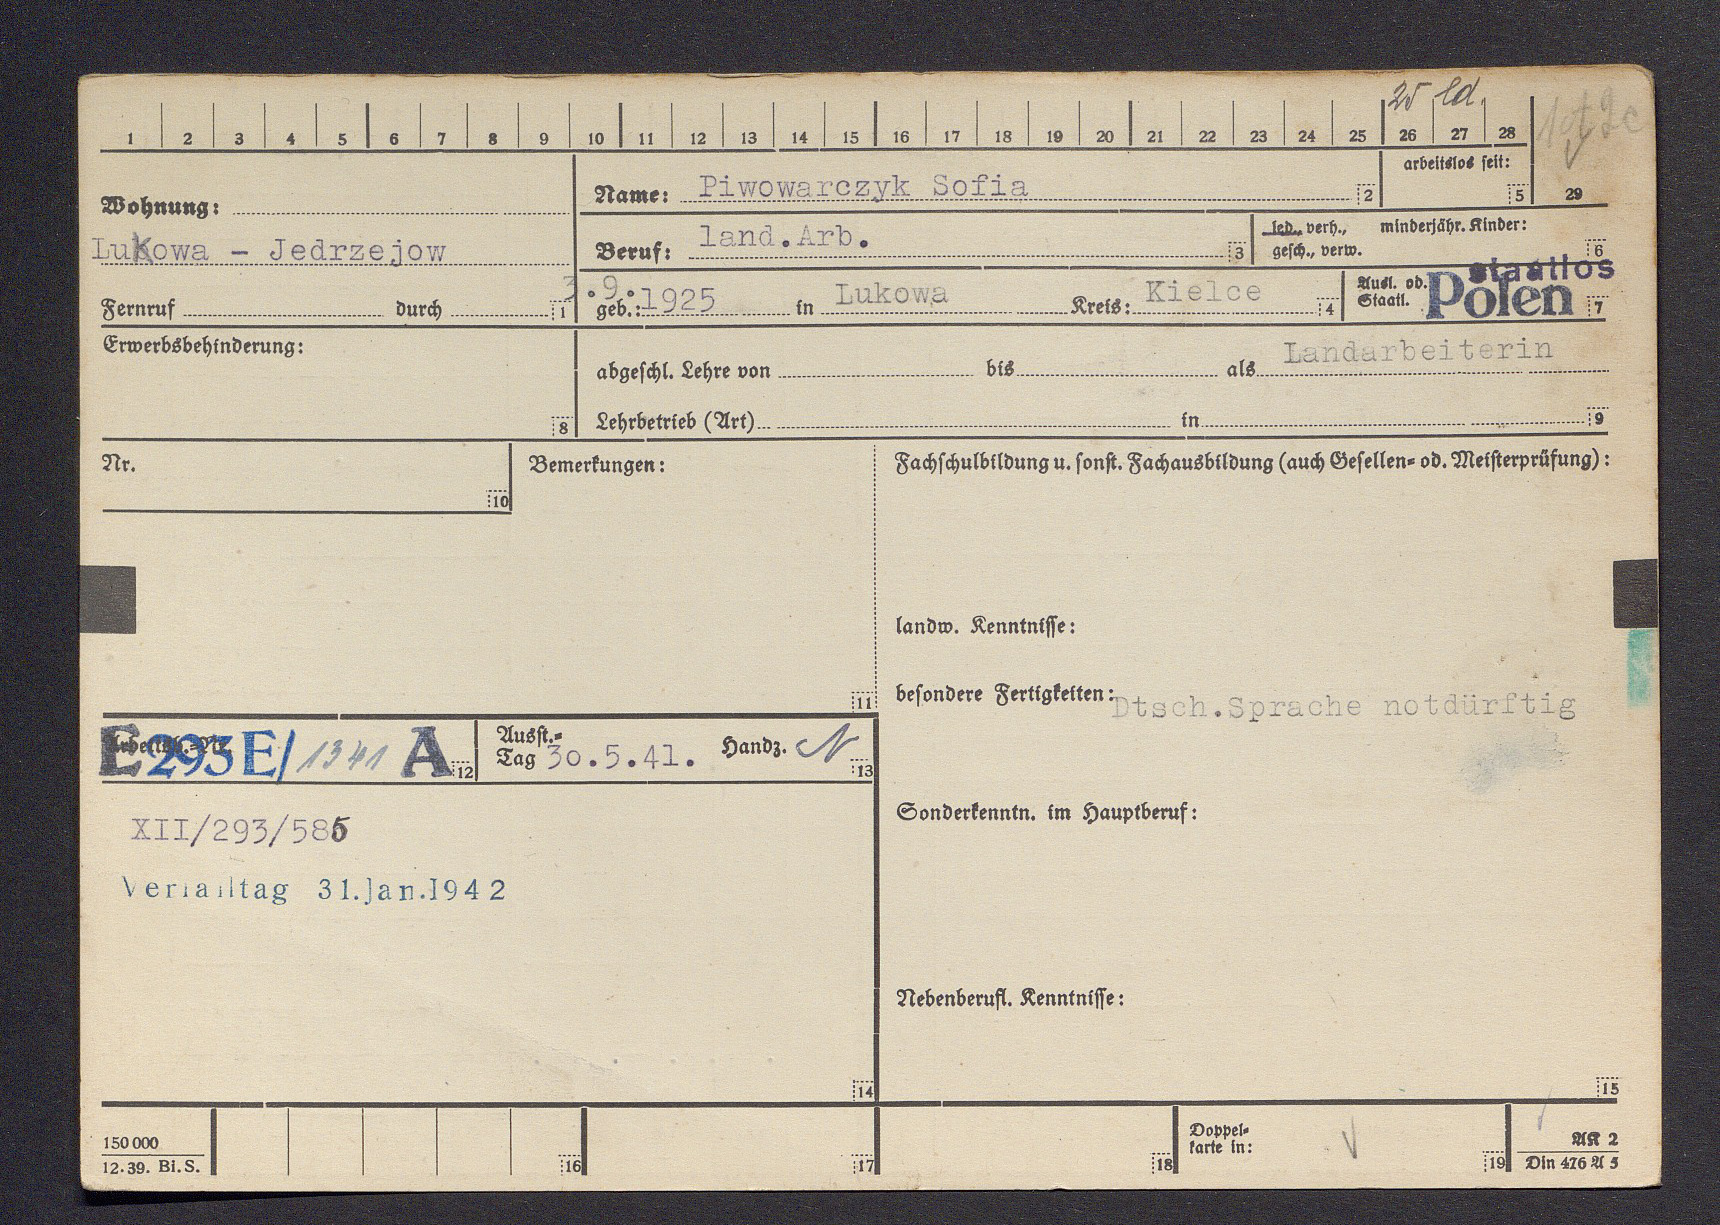 25 ld.
1 2 3 4 5 6 7 8 9 10 11 12 13 14 15 16 17 18 19 20 21 22 23 24 25 26 27 28
arbeitslos seit:
5 29
Wohnung:
Name: Piwowarczyk Sofia 2
Lukowa - Jedrzejow
Beruf: land.Arb. 3
led., verh., minderjähr. Kinder:
gesch., verw. 6
Fernruf durch 1
3.9.
geb.: 1925 in Lukowa Kreis: Kielce 4
staatlos
Ausl. od.
Staatl. Polen 7
Erwerbsbehinderung:
8
abgeschl. Lehre von bis als Landarbeiterin
Lehrbetrieb (Art) in 9
Nr.
10
Bemerkungen:
11
Fachschulbildung u. sonst. Fachausbildung (auch Gesellen= od. Meisterprüfung):
landw. Kenntnisse:
besondere Fertigkeiten: Dtsch.Sprache notdürftig
Arbeitsb.=Nr.
E 293 E/ 1341 A 12
Ausst.=
Tag 30.5.41. Handz. N 13
XII/293/585
Verfalltag 31.Jan.1942
14
Sonderkenntn. im Hauptberuf:
Nebenberufl. Kenntnisse:
15
150 000
12.39. Bi.S.
16 17 18
Doppel=
karte in:
19
AK 2
Din 476 A 5